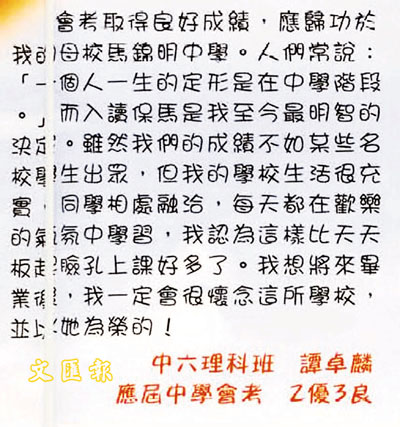 會考取得良好成績，應歸功於
我的母校馬錦明中學。人們常說：
「一個人一生的定形是在中學階段
。」而入讀保馬是我至今最明智的
決定。雖然我們的成績不如某些名
校學生出眾，但我的學校生活很充
實，同學相處融洽，每天都在歡樂
的氣氛中學習，我認為這樣比天天
板起臉孔上課好多了。我想將來畢
業後，我一定會很懷念這所學校，
並以她為榮的！
中六理科班 譚卓麟
文匯報
應屆中學會考 2優3良